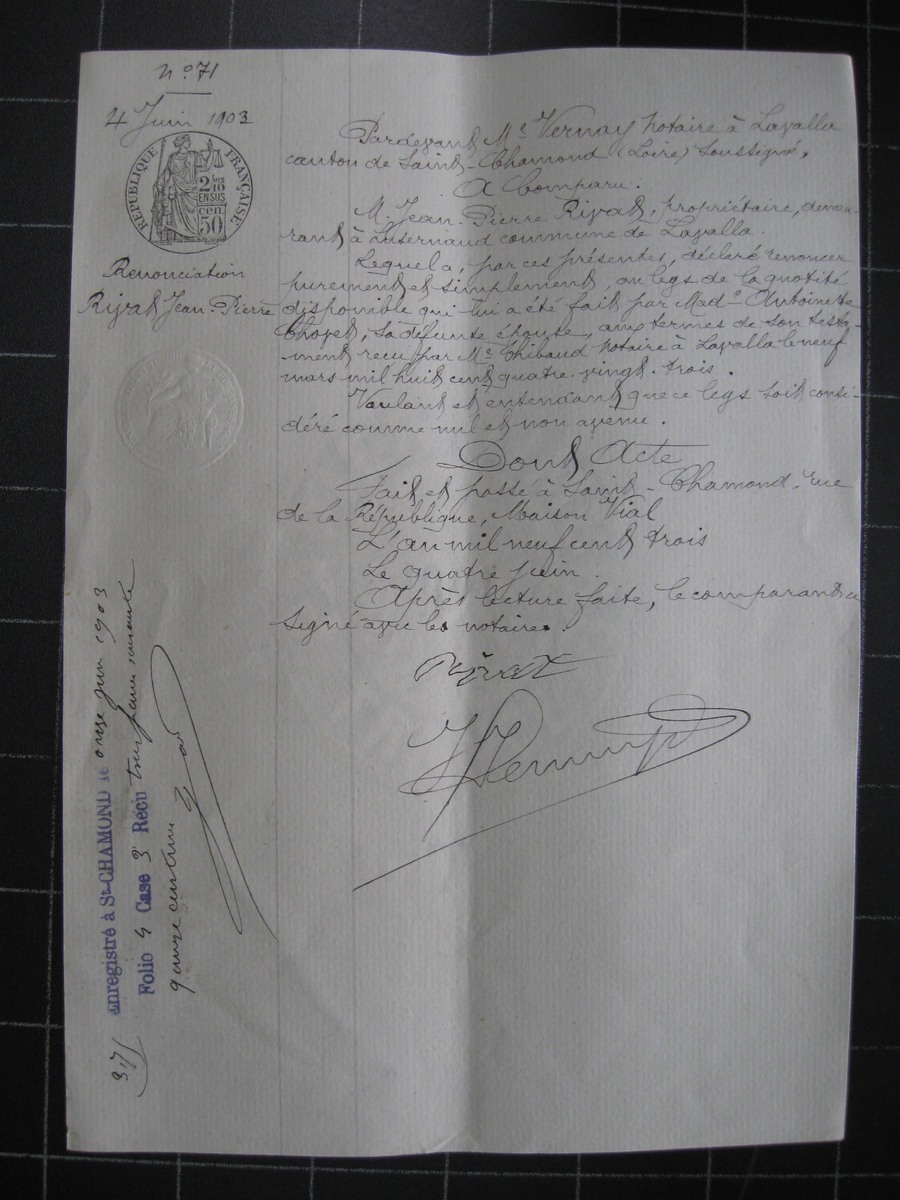 n° 71
4 Juin 1903
RÉPUBLIQUE FRANÇAISE
2 18
EN SUS
cen
50
Renonciation
Rivat Jean-Pierre
Pardevant Me Vernay notaire à Lavalla
canton de Saint-Chamond (Loire) soussigné,
A Comparu.
M. Jean-Pierre Rivat, propriétaire, demeu-
rant à Luzernaud commune de Lavalla.
Lequel a, par ces présentes, déclaré renoncer
purement et simplement, au legs de la quotité
disponible qui lui a été fait par Made Antoinette
Chovet, sa défunte épouse, aux termes de son testa-
ment reçu par Me Thibaud notaire à Lavalla le neuf
mars mil huit cent quatre-vingt-trois.
Voulant et entendant que ce legs soit consi-
déré comme nul et non avenu.
Dont Acte
Fait et passé à Saint-Chamond, rue
de la République, Maison Vial
L'an mil neuf cent trois
Le quatre juin.
Après lecture faite, le comparant a
signé avec les notaires.
Rivat
Vernay
Enregistré à St-CHAMOND le onze juin 1903
Folio 4 Case 3 Reçu trois francs soixante
quinze centimes
3,75